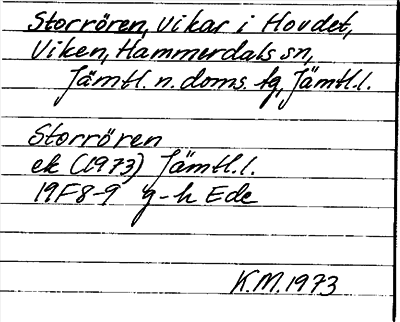 Storrören, vikar i Hovdet,
Viken, Hammerdals sn,
Jämtl. n. doms. fg, Jämtl. l.
Storrören
ek (1973) Jämtl. l.
19F8-9 g-h Ede
K.M. 1973